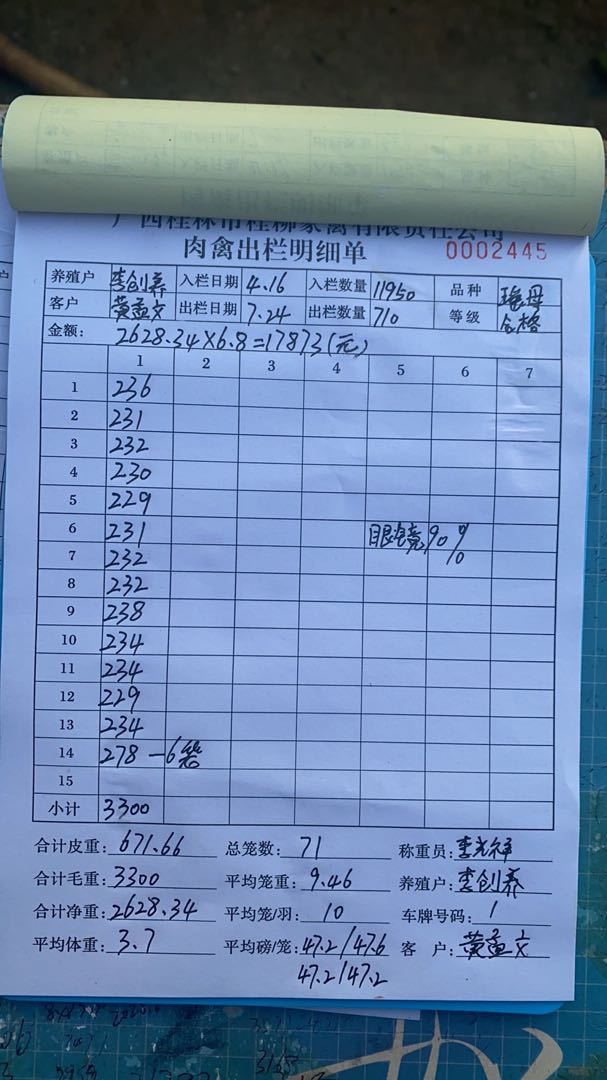 广西桂林市桂柳家禽有限责任公司
肉禽出栏明细单 0002445
养殖户 李创养 入栏日期 4.16 入栏数量 11950 品种 瑶母
客户 黄孟文 出栏日期 7.24 出栏数量 710 等级 合格
金额: 2628.34×6.8=17873(元)
1 2 3 4 5 6 7
1 236
2 231
3 232
4 230
5 229
6 231 眼镜90%
7 232
8 232
9 238
10 234
11 234
12 229
13 234
14 278 -6笼
15
小计 3300
合计皮重: 671.66 总笼数: 71 称重员: 李光祥
合计毛重: 3300 平均笼重: 9.46 养殖户: 李创养
合计净重: 2628.34 平均笼/羽: 10 车牌号码: 1
平均体重: 3.7 平均磅/笼: 47.2/47.6 客 户: 黄孟文
47.2/47.2